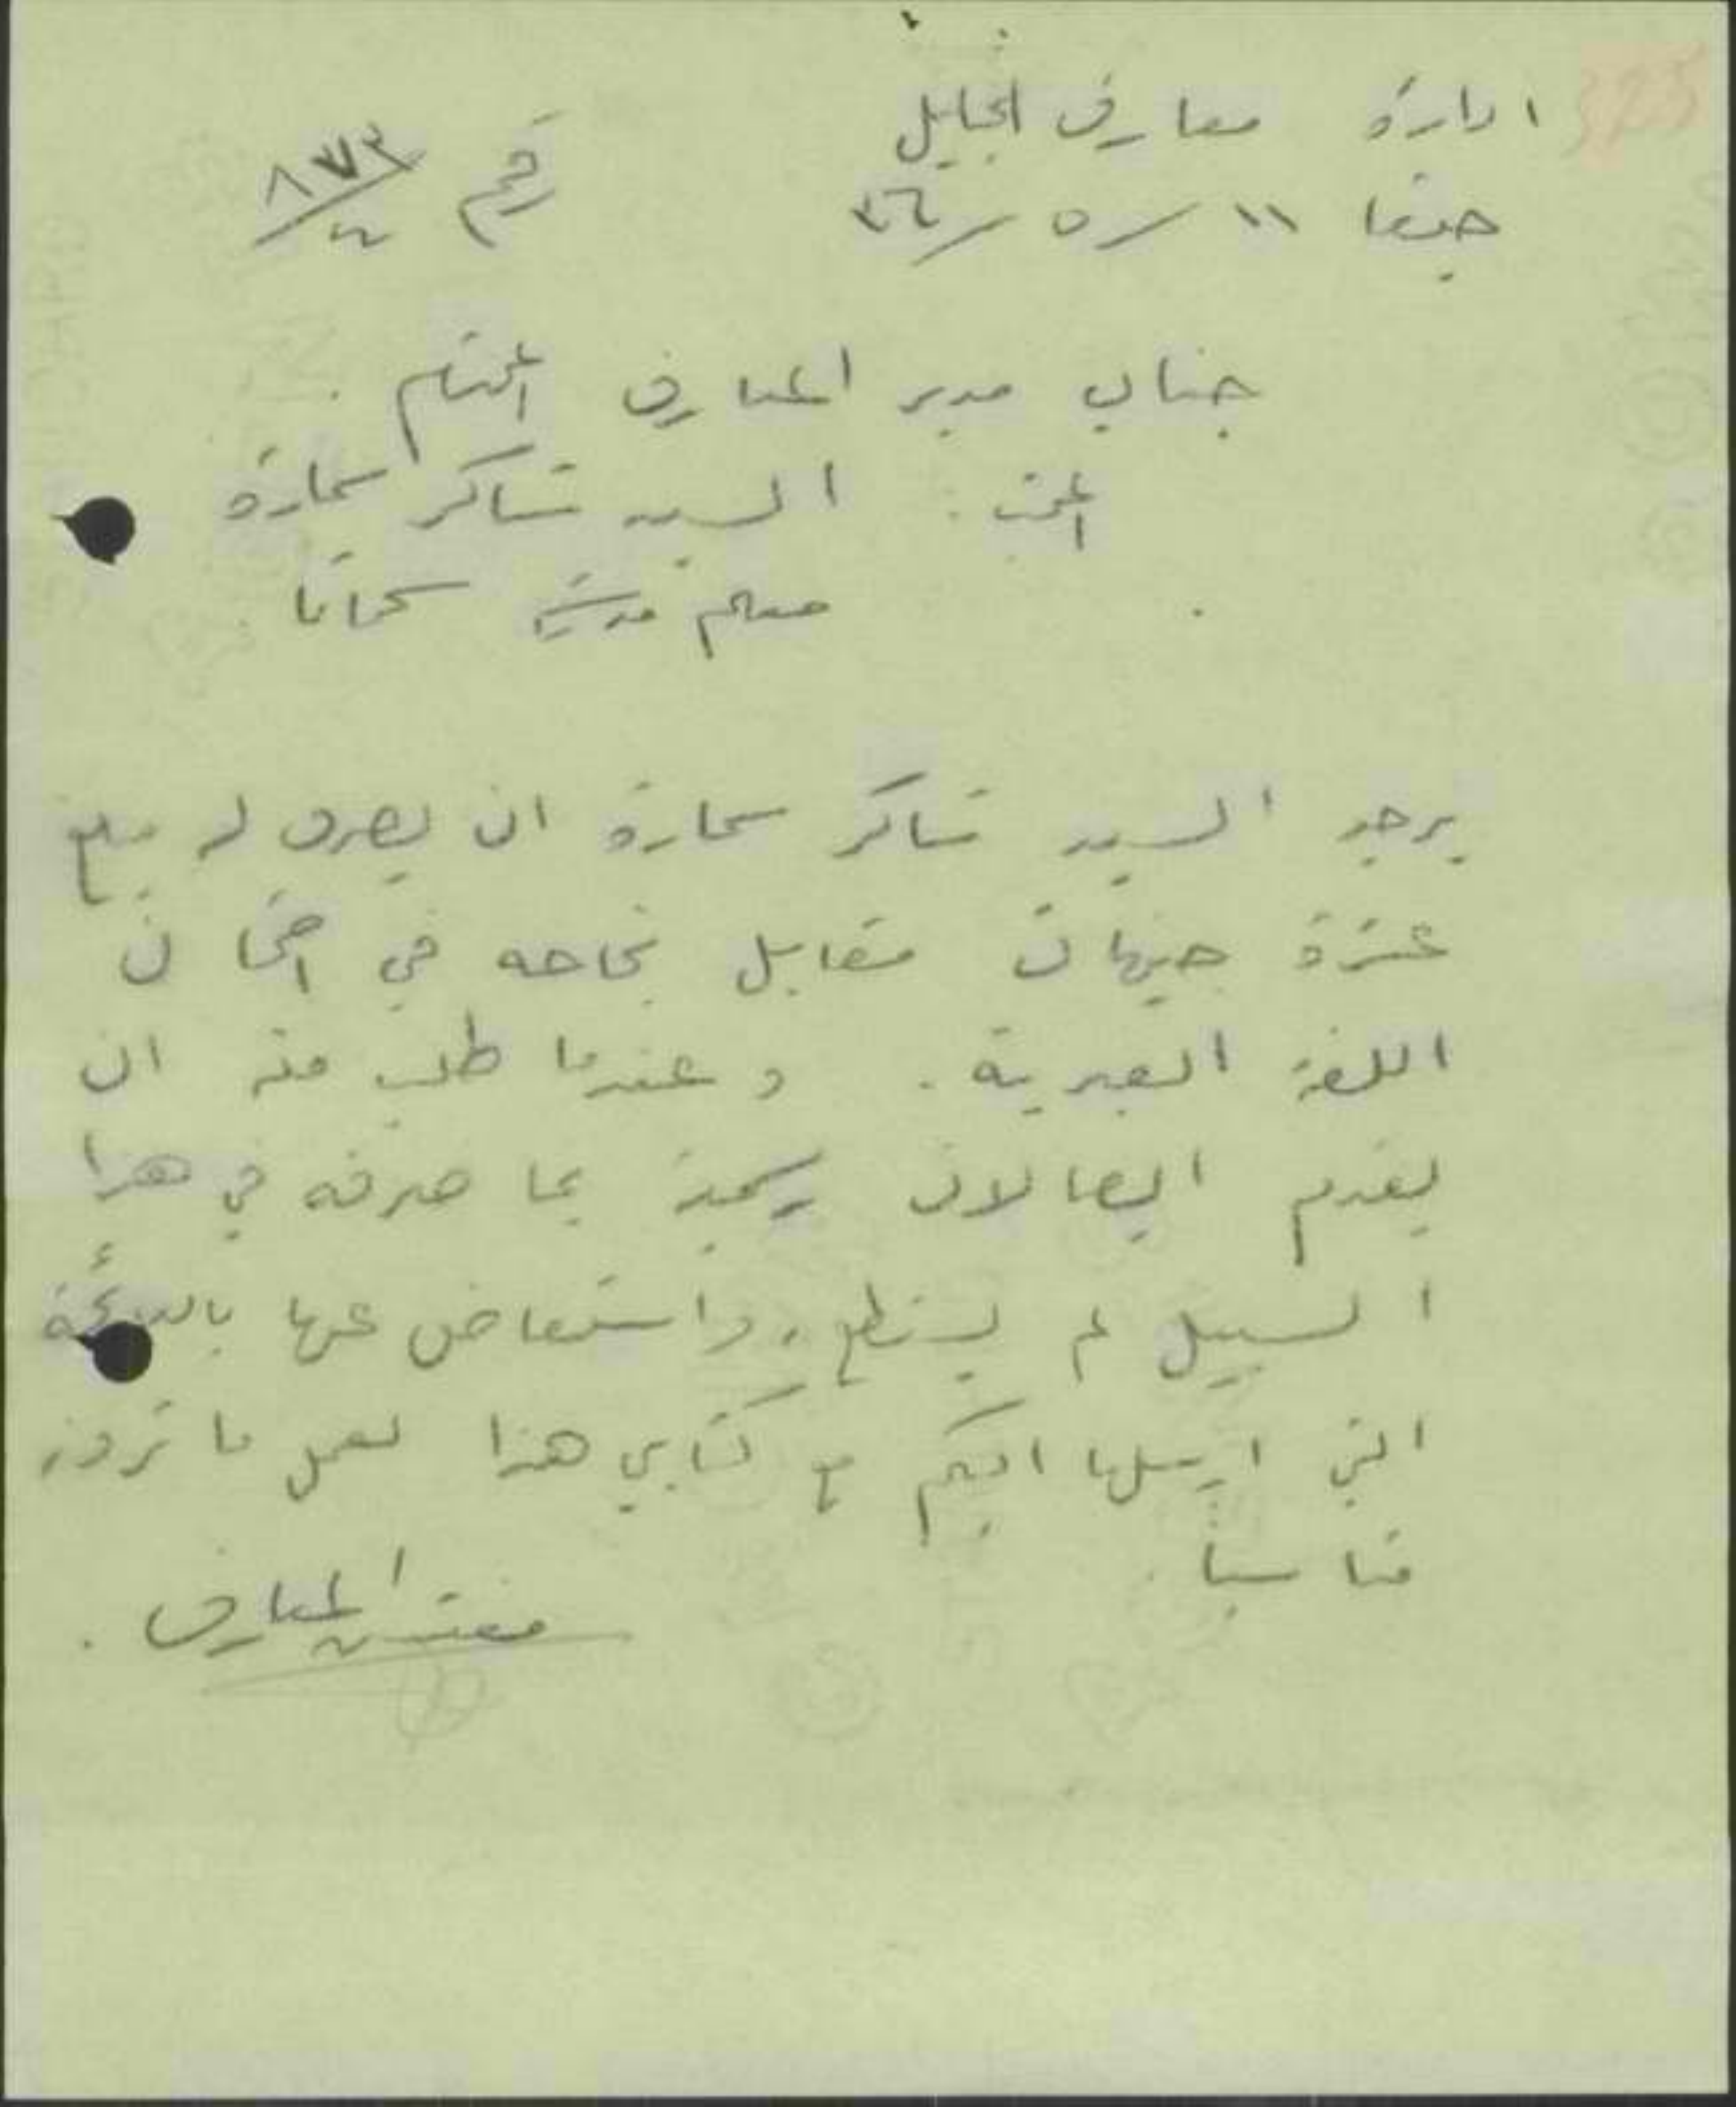 325
ادارة معارف الجليل
حيفا ١١/٥/٣٦ رقم ٨٧٣/٤
جناب مدير المعارف المحترم .
المبحث : السيد شاكر سمارة
معلم مدرسة سحماتا .
يرجو السيد شاكر سمارة ان يصرف له مبلغ
عشرة جنيهات مقابل نجاحه في امتحان
اللغة العبرية . وعندما طلب منه ان
يقدم ايصالات رسمية بما صرفه في هذا
السبيل لم يستطع، واستعاض عنها باللائحة
التي ارسلها اليكم مع كتابي هذا لعمل ما ترونه
مناسباً .
مفتش المعارف .